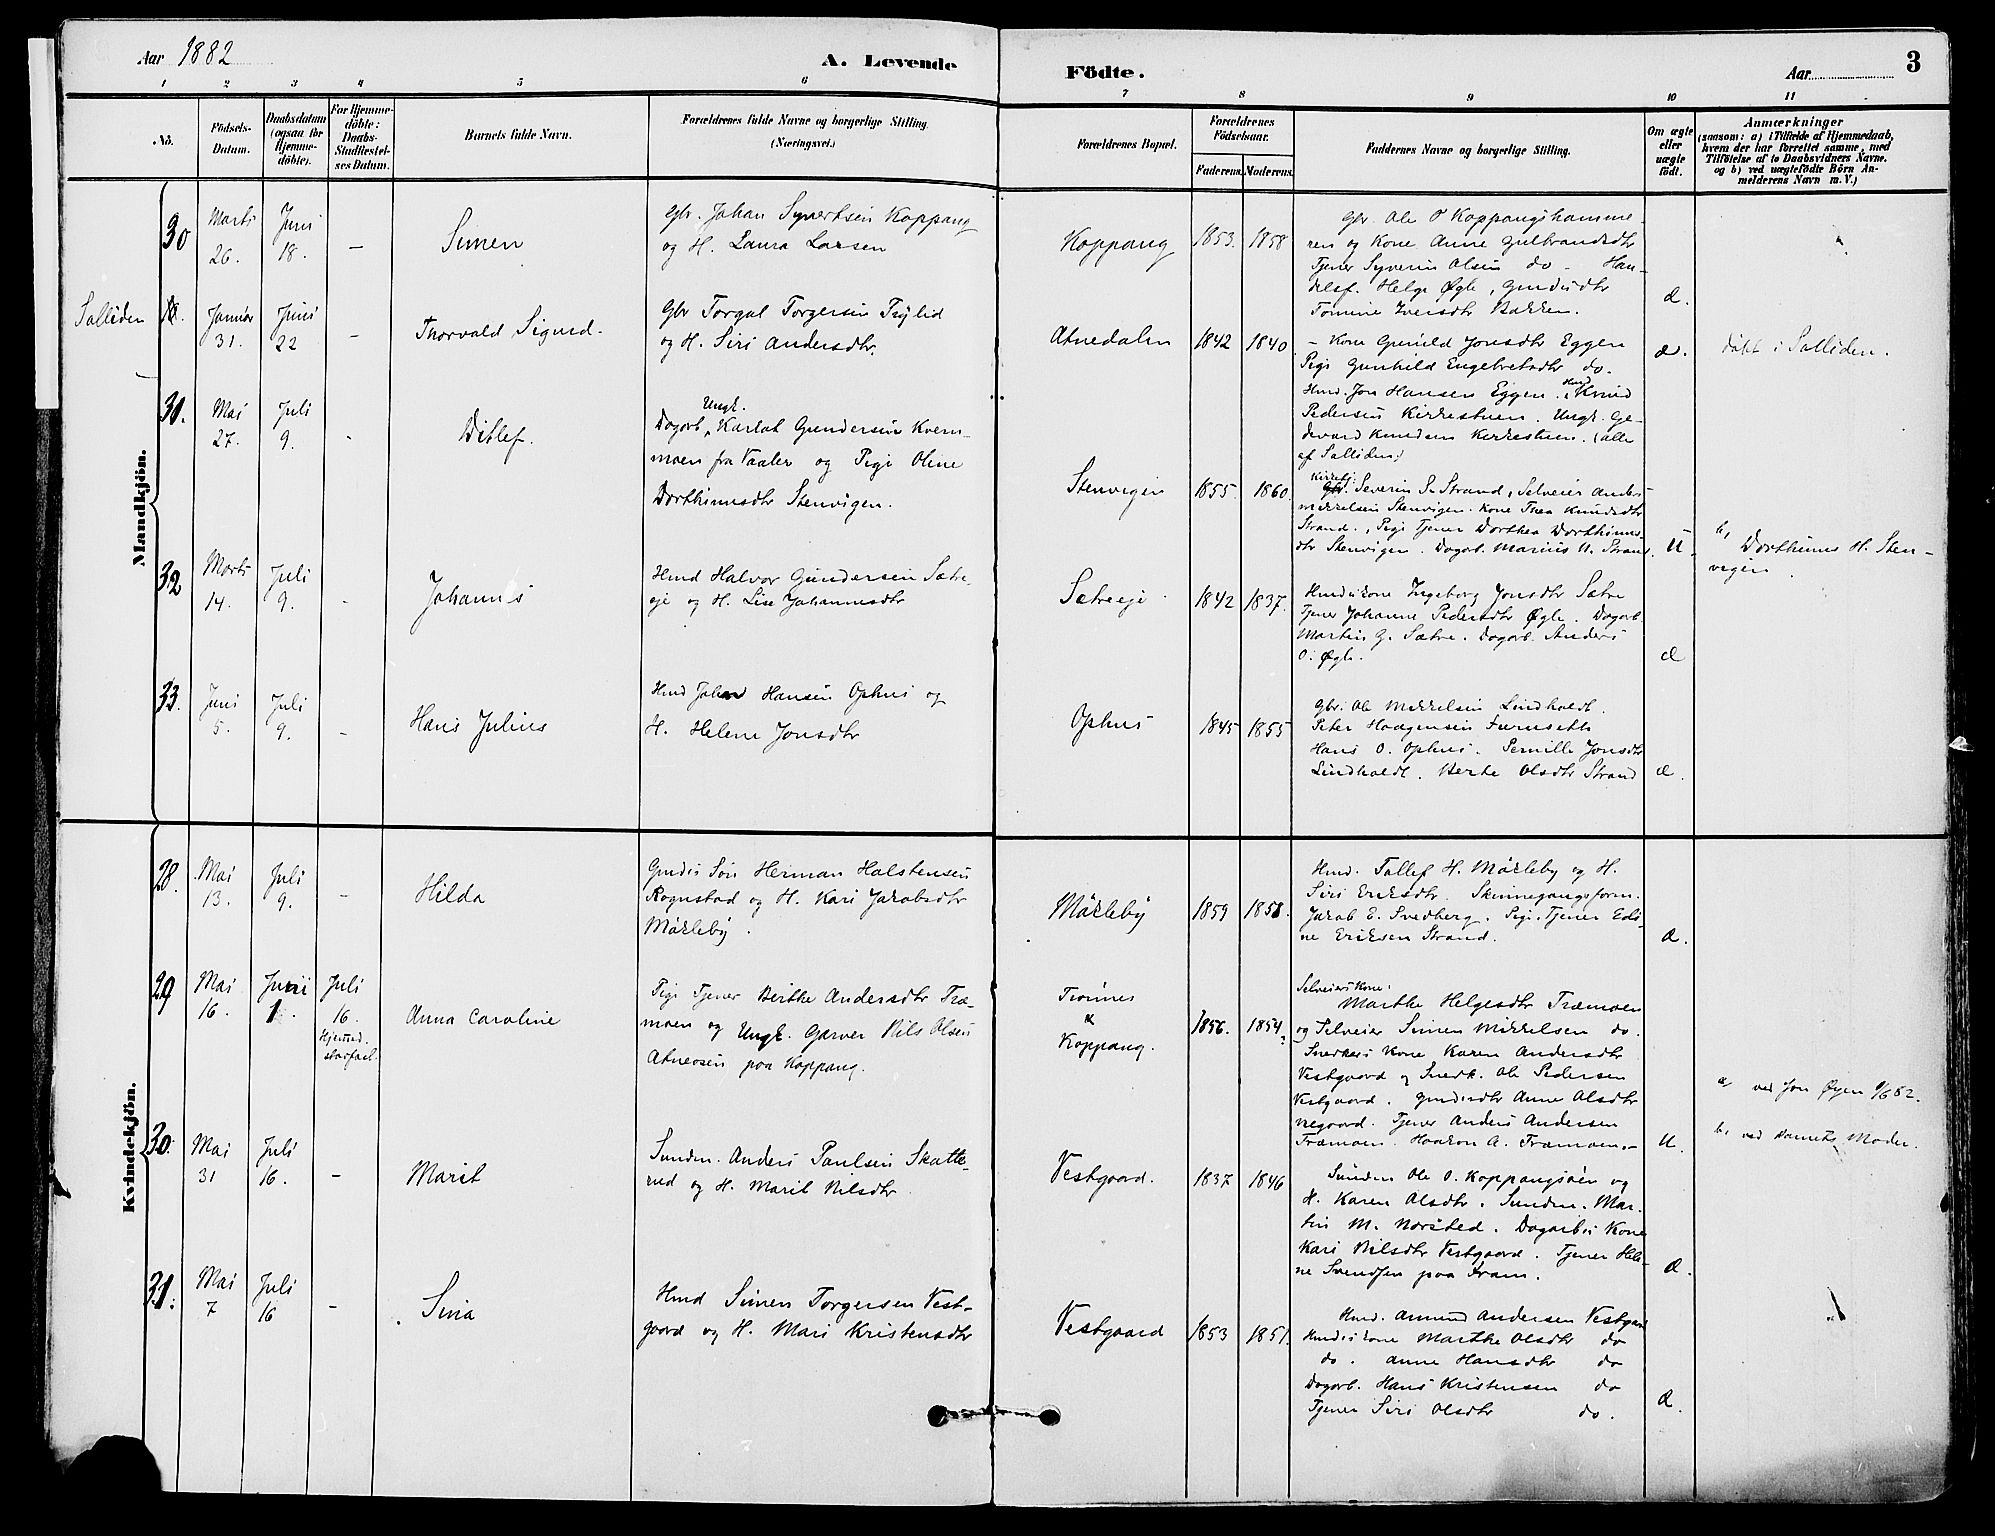 Aar 1882
A. Levende
Födte.
Aar
3
1 2 3 4 5 6 7 8 9 10 11
No.
Födsels-
Datum.
Daabsdatum
(ogsaa for
Hjemme-
döbte).
For Hjemme-
döbte:
Daabs-
Stadfæstel-
ses Datum.
Barnets fulde Navn.
Forældrenes fulde Navne og borgerlige Stilling.
(Næringsvei.)
Forældrenes Bopæl.
Forældrenes
Födselsaar.
Faderens. Moderens.
Faddernes Navne og borgerlige Stilling.
Om ægte
eller
uægte
födt.
Anmærkninger
(saasom: a) i Tilfælde af Hjemmedaab,
hvem der har forrettet samme, med
Tilföielse af to Daabsvidners Navne.
og b) ved uægtefödte Börn An-
melderens Navn m. V.)
Mandkjön.
30
Marts
26.
Juni
18.
–
Simen
Gbr. Johan Syvertsen Koppang
og H. Laura Larsen
Koppang
1853. 1858
Gbr. Ole O Koppangshamme-
ren og Kone Anne Gulbrandsdtr
Tjener Syverin Olsen do – Han-
delsf. Helge Øgle, Gmdsdtr
Tomine Iversdtr Bakken.
æ.
Solliden
Januar
31.
Juni
22
–
Thorvald Sigurd.
Gbr Torgal Torgersen
og H. Siri Andersdtr.
Atnedalen
1842 1840
– Kone Gunild Jonsdtr Eggen
Pige Gunhild Engebretsdtr do.
Hmd. Jon Hansen Eggen. Hmd Knud
Pedersen Kirkestuen. Ungk. Ge-
devard Knudsen Kirkestuen. (alle
af Solliden)
æ.
döbt i Solliden.
31.
Mai
27.
Juli
9.
-
Ditlef.
Ungk.
Dagarb. Karlot Gundersen Kvern-
moen fra Vaaler og Pige Oline
Dorthinusdtr Stenvigen.
Stenvigen
1855. 1860.
Kirketj.
Severin S. Strand, Selveier Anders
Mikkelsen Stenvigen. Kone Thea Knudsdtr
Strand., Pige Tjener Dorthea Dorthinus-
dtr Stenvigen. Dagarb. Marius M. Strand.
U.
b, Dorthinus H. Sten-
vigen.
32
Marts
14.
Juli
9.
-
Johannes
Hmd Halvor Gundersen Sætre-
eje og H. Lise Johannesdtr
Sætreeje
1842 1837.
Hmdskone Ingeborg Jonsdtr Sætre
Tjener Johanne Pedersdtr Øgle. Dagarb.
Martin G. Sætre. Dagarb. Anders
O. Øgle.
æ
33.
Juni
5.
Juli
9.
-
Hans Julius
Hmd Johan Hansen Ophus og
H. Helene Jonsdtr
Ophus
1845 1855
Gbr. Ole Mikkelsen Lindholdt.
Peter Haagensen Furuseth
Hans O. Ophus. Pernille Jonsdtr
Lindholdt. Berte Olsdtr Strand
æ.
Kvindekjön.
28.
Mai
13.
Juli
9.
–
Hilda
Gmds Søn Herman Halstensen
Rognstad og H. Kari Jakobsdtr
Mörkeby.
Mörkeby
1859 1858.
Hmd. Tollef H. Mörkeby og H.
Siri Eriksdtr. Skinnegangsform.
Jakob E. Svedberg. Pige, Tjener Edi-
ne Eriksen Strand.
æ.
29
Mai
16.
Juni
1.
Juli
16.
Hjemmed.
stadfæst.
Anna Caroline
Pige Tjener Birthe Andersdtr Træ-
moen og Ungk. Garver Nils Olsen
Atneosen paa Koppang.
Trönnes
&
Koppang.
1856. 1854.
Selveiers Kone:
Marthe Helgesdtr Træmoen
og Selveier Simen Mikkelsen do.
Snedkers Kone Karen Andersdtr
Vestgaard og Snedk. Ole Pedersen
Vestgaard. Gmdsdtr Anne Olsdtr
Tjener Anders Andersen
Træmoen. Haakon A. Træmoen.
U.
a, ved Jon Øyen 1/6 82.
b, ved Barnets Moder.
30.
Mai
31
Juli
16.
–
Marit
Inndn. Anders Paulsen Skatte-
rud og H. Marit Nilsdtr.
Vestgaard.
1837 1846
Inndn Ole O. Koppangsöien og
H. Karen Olsdtr. Inndn. Mar-
tin M. Norsted. Dagarbs Kone
Kari Nilsdtr Vestgaard. Tjener Hele-
ne Svendsen paa Fram.
æ.
31.
Mai
7
Juli
16
-
Sina
Hmd Simen Torgersen Vest-
gaard og H. Mari Kristensdtr
Vestgaard
1853 1851.
Hmd. Amund Andersen Vestgaard
Hmdskone Marthe Olsdtr do
do. Anne Hansdtr do
Dagarb. Hans Kristensen do
Tjener Siri Olsdtr do.
æ.